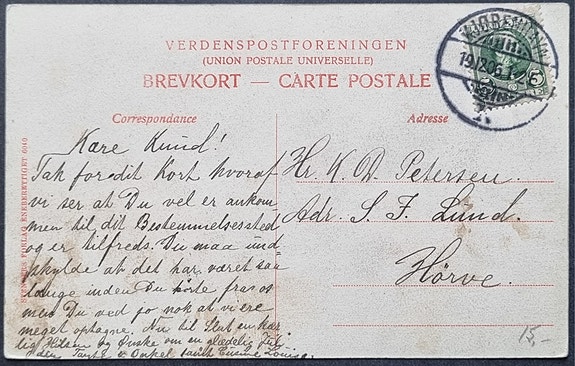 VERDENSPOSTFORENINGEN
(UNION POSTALE UNIVERSELLE)
BREVKORT — CARTE POSTALE
Correspondance
Adresse
Kære Knud!
Tak for dit Kort hvoraf
vi ser at Du vel er ankom
men til dit Bestemmelsessted
og er tilfreds. Du maa und
skylde at det har været saa
længe inden Du hørte fra os
men Du ved jo nok at vi ere
meget optagne. Nu til Slut en kær
lig Hilsen og Ønske om en glædelig Jul
Tante & Onkel samt Emma Louise.
Hr. K. D. Petersen.
Adr. S. F. Lund.
Hørve.
5
15,-
FORLAG ENEBERETTIGET 6040